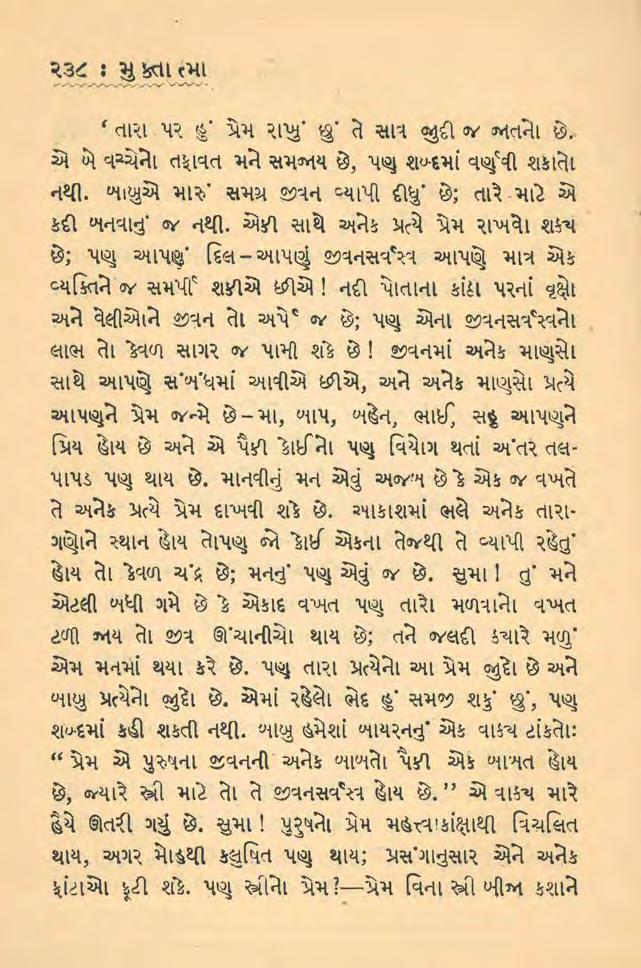 ૨૩૮ : મુક્તાત્મા
‘ તારા પર હું પ્રેમ રાખું છું તે સાવ જુદી જ જાતનો છે.
એ બે વચ્ચેનો તફાવત મને સમજાય છે, પણ શબ્દમાં વર્ણવી શકાતો
નથી. બાબુએ મારું સમગ્ર જીવન વ્યાપી દીધું છે; તારે માટે એ
કદી બનવાનું જ નથી. એકી સાથે અનેક પ્રત્યે પ્રેમ રાખવો શક્ય
છે; પણ આપણું દિલ – આપણું જીવનસર્વસ્વ આપણે માત્ર એક
વ્યક્તિને જ સમર્પી શકીએ છીએ ! નદી પોતાના કાંઠા પરનાં વૃક્ષો
અને વેલીઓને જીવન તો અર્પે જ છે; પણ એના જીવનસર્વસ્વનો
લાભ તો કેવળ સાગર જ પામી શકે છે ! જીવનમાં અનેક માણસો
સાથે આપણે સંબંધમાં આવીએ છીએ, અને અનેક માણસો પ્રત્યે
આપણને પ્રેમ જન્મે છે – મા, બાપ, બહેન, ભાઈ, સહુ આપણને
પ્રિય હોય છે અને એ પૈકી કોઈનો પણ વિયોગ થતાં અંતર તલ-
પાપડ પણ થાય છે. માનવીનું મન એવું અજબ છે કે એક જ વખતે
તે અનેક પ્રત્યે પ્રેમ દાખવી શકે છે. આકાશમાં ભલે અનેક તારા-
ગણોને સ્થાન હોય તોપણ જો કોઈ એકના તેજથી તે વ્યાપી રહેતું
હોય તો કેવળ ચંદ્ર છે; મનનું પણ એવું જ છે. સુમા ! તું મને
એટલી બધી ગમે છે કે એકાદ વખત પણ તારો મળવાનો વખત
ટળી જાય તો જીવ ઊંચાનીચો થાય છે; તને જલદી ક્યારે મળું
એમ મનમાં થયા કરે છે. પણ તારા પ્રત્યેનો આ પ્રેમ જુદો છે અને
બાબુ પ્રત્યેનો જુદો છે. એમાં રહેલો ભેદ હું સમજી શકું છું, પણ
શબ્દમાં કહી શકતી નથી. બાબુ હમેશાં બાયરનનું એક વાક્ય ટાંકતોઃ
“ પ્રેમ એ પુરુષના જીવનની અનેક બાબતો પૈકી એક બાબત હોય
છે, જ્યારે સ્ત્રી માટે તો તે જીવનસર્વસ્વ હોય છે. ” એ વાક્ય મારે
હૈયે ઊતરી ગયું છે. સુમા ! પુરુષનો પ્રેમ મહત્ત્વાકાંક્ષાથી વિચલિત
થાય, અગર મોહથી કલુષિત પણ થાય; પ્રસંગાનુસાર એને અનેક
ફાંટાઓ ફૂટી શકે. પણ સ્ત્રીનો પ્રેમ ?—પ્રેમ વિના સ્ત્રી બીજા કશાને